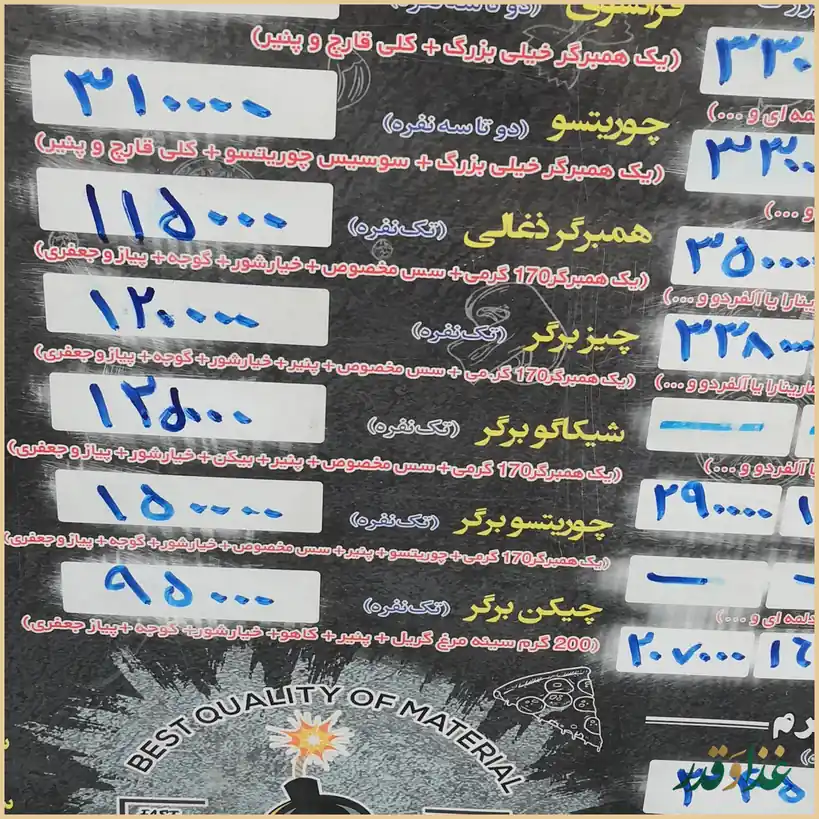 فرانسوی (دو تا سه نفره)
(یک همبرگر خیلی بزرگ + کلی قارچ و پنیر)
چوریتسو (دو تا سه نفره) ۳۱۰۰۰۰
(یک همبرگر خیلی بزرگ + سوسیس چوریتسو + کلی قارچ و پنیر)
همبرگر ذغالی (تک‌نفره) ۱۱۵۰۰۰
(یک همبرگر170 گرمی+ سس مخصوص + خیارشور + گوجه + پیاز و جعفری)
چیز برگر (تک‌نفره) ۱۲۰۰۰۰
(یک همبرگر170 گر می + سس مخصوص + پنیر + خیارشور + گوجه + پیاز و جعفری)
شیکاگو برگر (تک‌نفره) ۱۳۵۰۰۰
(یک همبرگر170 گرمی+ سس مخصوص + پنیر + بیکن + خیارشور + پیاز و جعفری)
چوریتسو برگر (تک‌نفره) ۱۵۰۰۰۰
(یک همبرگر170 گرمی + چوریتسو + پنیر + سس مخصوص + خیارشور + گوجه + پیاز و جعفری)
چیکن برگر (تک‌نفره) ۹۵۰۰۰
(200 گرم سینه مرغ گریل + پنیر + کاهو+ خیارشور+ گوجه +پیاز جعفری)
BEST QUALITY OF MATERIAL
FAST
و ...)
۳۵۰۰۰۰
یا آلفردو و ...)
۳۳۸۰۰۰
مارینارا یا آلفردو و ...)
آلفردو و ...)
۲۹۰۰۰۰
ای و ...)
۲۰۷۰۰۰
غذا و قدر